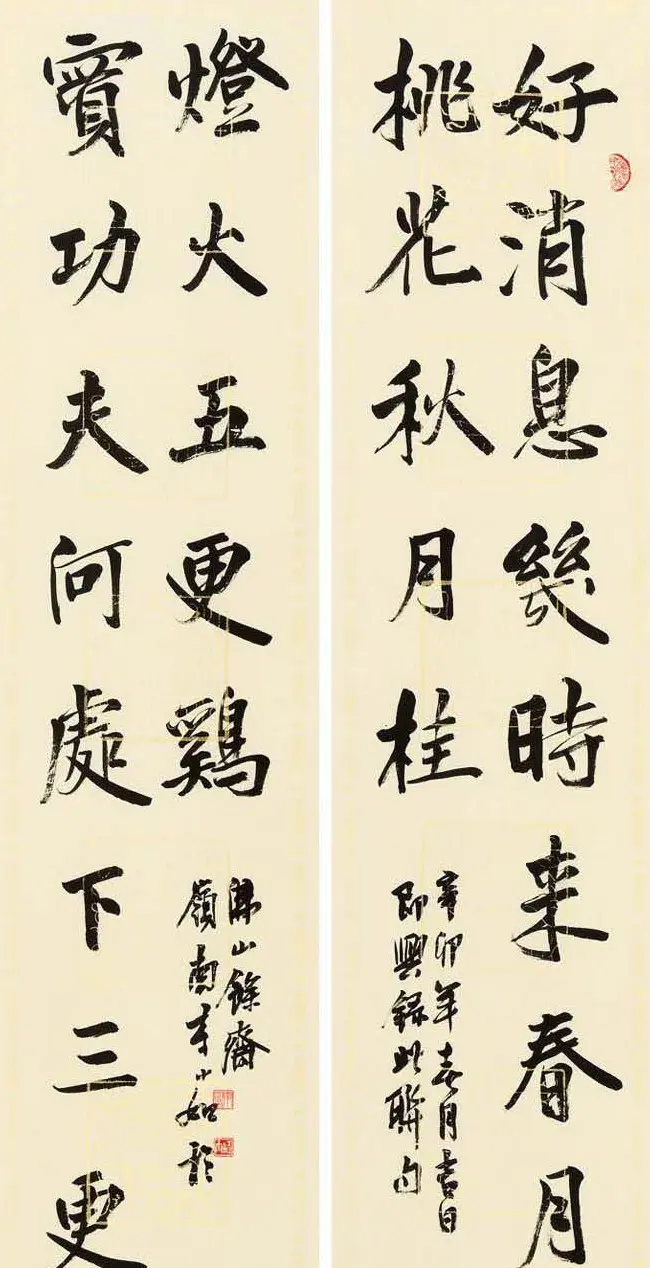 好消息幾時来春月
桃花秋月桂
辛卯年春月吉日
即興録此聯句
實功夫何處下三更
燈火五更鷄
嶺南李小如於
佛山餘齋